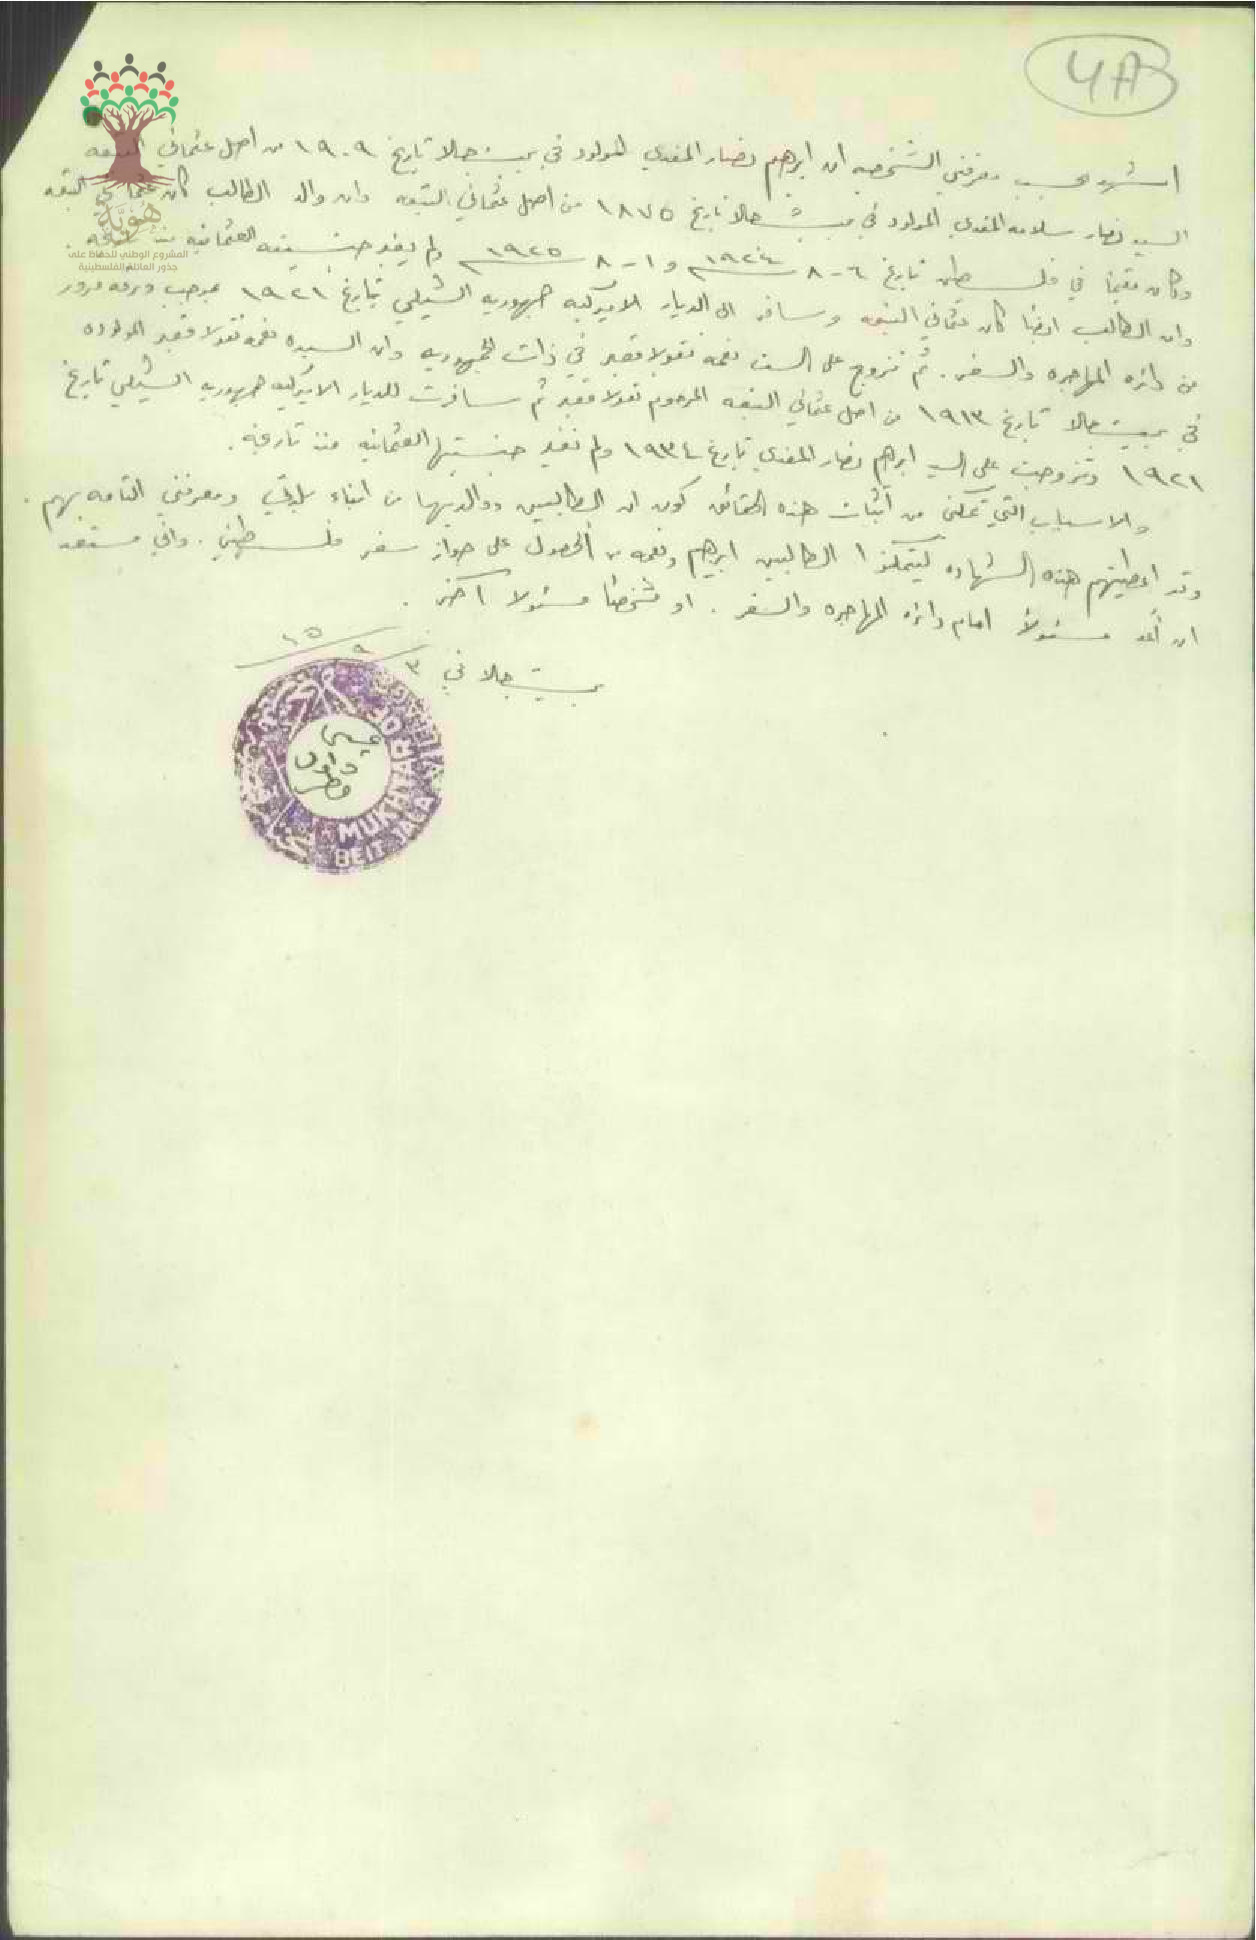 4A3
اشهد بحسب معرفتي الشخصيه ان ابرهيم نصار المفدي المولود في بيت جالا تاريخ ١٩٠٩ من اصل عثماني التبعه
السيد نصار سلامه المفدي المولود في بيت جالا تاريخ ١٨٧٥ من اصل عثماني التبعه وان والد الطالب كان عثماني التبعه
وكان مقيما في فلسطين تاريخ ٦-٨ ١٩٢٤ و ١-٨ ١٩٢٥ ولم يفقد جنسيته العثمانيه منذ
وان الطالب ايضا كان عثماني التبعه وسافر الى الديار الاميركيه جمهورية الشيلي بتاريخ ١٩٢١ بموجب ورقه مرور
من دائره المهاجره والسفر. ثم تزوج على الست نعمه نقولا قصير في ذات الجمهوريه وان السيده نعمه نقولا قصير المولوده
في بيت جالا تاريخ ١٩١٣ من اصل عثماني التبعه المرحوم نقولا قصير ثم سافرت للديار الاميركيه جمهورية الشيلي تاريخ
١٩٢١ وتزوجت على السيد ابرهيم نصار المفدي تاريخ ١٩٣٤ ولم تفقد جنسيتها العثمانيه منذ تاريخه.
والاسباب التي تمكني من آثبات هذه الحقائق كون ان الطالبين ووالديهما من ابناء بلدتي ومعرفتي التامه بهم.
وقد اعطيتهم هذه الشهاده ليتمكنوا الطالبين ابرهيم ونعمه من الحصول على جواز سفر فلسطيني. واني مستعد
ان أعد مسئولاً امام دائره المهاجره والسفر. او شخصاً مسئولا آخر.
بيت جالا في ٣/٩/١٥
عيسى
MUKHTAR
BEIT JALA
هوية
المشروع الوطني للحفاظ على
جذور العائلة الفلسطينية